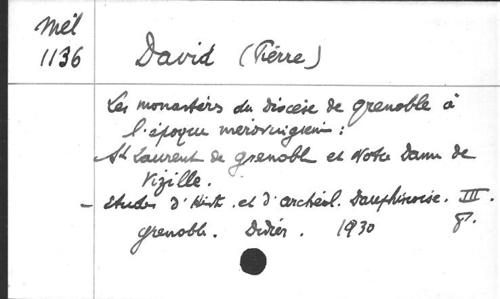 Mél
1136
David (Pierre)
Les monastères du diocèse de Grenoble à
l'époque mérovingien :
St Laurent de Grenobl et Notre Dame de
Vizille.
- Etudes d'Hist. et d'archéol. Dauphinoise. III.
Grenobl. Didier. 1930 8°.